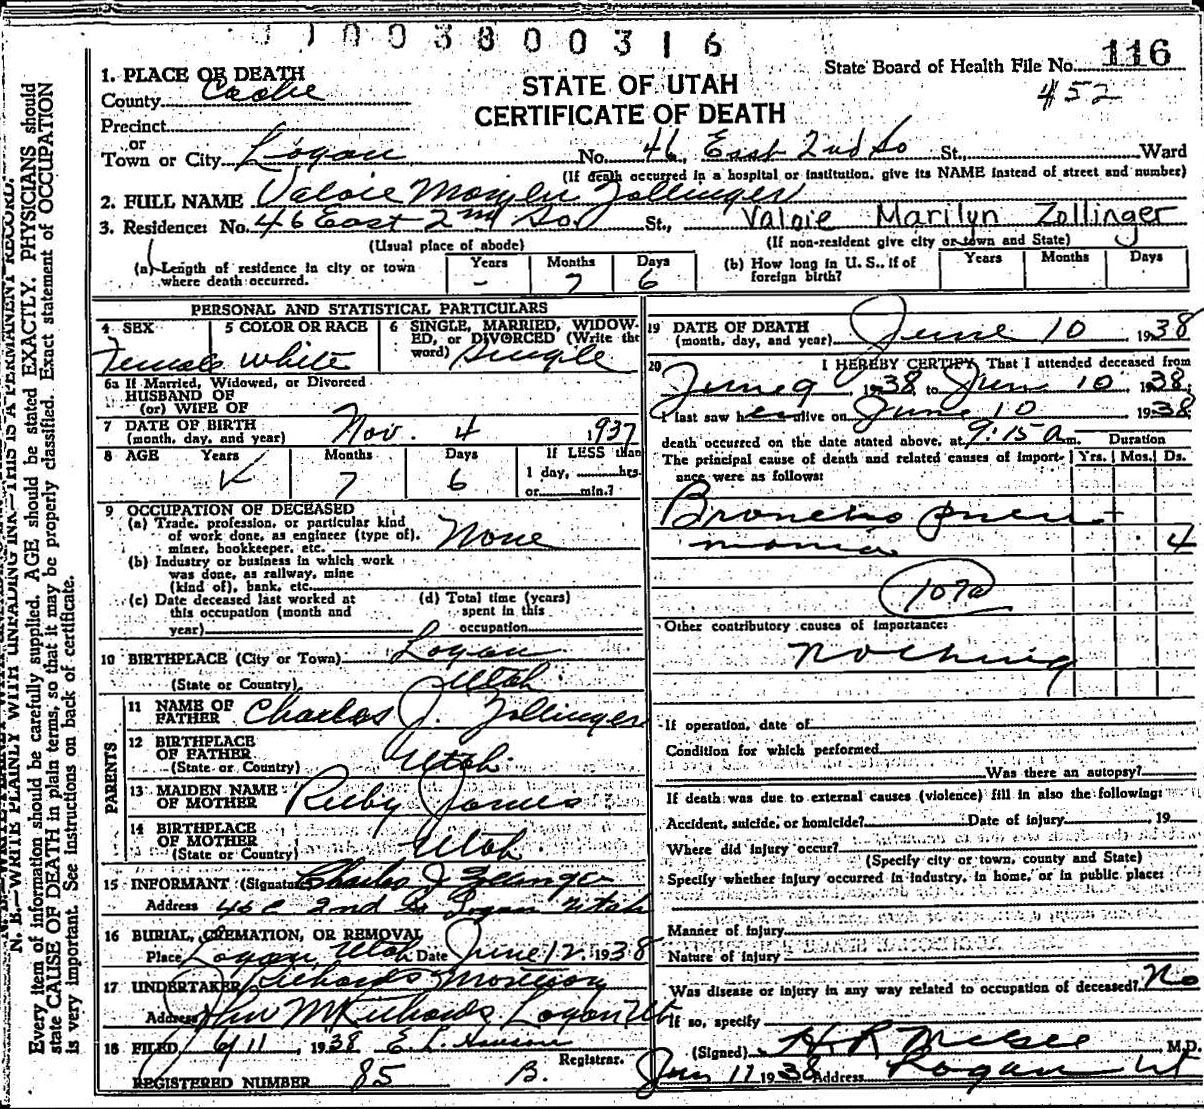 1003800316
State Board of Health File No. 116
#52
STATE OF UTAH
CERTIFICATE OF DEATH
1. PLACE OF DEATH
County Cache
Precinct
or
Town or City Logan No. 46 East 2nd So St., Ward
(If death occurred in a hospital or institution, give its NAME instead of street and number)
2. FULL NAME Valoie Marilyn Zollinger
3. Residence: No. 46 East 2nd So St., Valoie Marilyn Zollinger
(Usual place of abode) (If non-resident give city or town and State)
(a) Length of residence in city or town where death occurred. Years - Months 7 Days 6
(b) How long in U. S., if of foreign birth? Years Months Days
PERSONAL AND STATISTICAL PARTICULARS
4 SEX Female
5 COLOR OR RACE White
6 SINGLE, MARRIED, WIDOWED, or DIVORCED (Write the word) Single
6a If Married, Widowed, or Divorced
HUSBAND OF
(or) WIFE OF
7 DATE OF BIRTH
(month, day, and year) Nov. 4 1937
8 AGE Years Months 7 Days 6 If LESS than
1 day, hrs.
or min.?
9 OCCUPATION OF DECEASED
(a) Trade, profession, or particular kind
of work done, as engineer (type of),
miner, bookkeeper, etc. None
(b) Industry or business in which work
was done, as railway, mine
(kind of), bank, etc.
(c) Date deceased last worked at
this occupation (month and
year)
(d) Total time (years)
spent in this
occupation
10 BIRTHPLACE (City or Town) Logan
(State or Country) Utah
PARENTS
11 NAME OF
FATHER Charles J. Zollinger
12 BIRTHPLACE
OF FATHER
(State or Country) Utah
13 MAIDEN NAME
OF MOTHER Ruby James
14 BIRTHPLACE
OF MOTHER
(State or Country) Utah
15 INFORMANT (Signature) Charles J Zollinger
Address 46 E 2nd So Logan Utah
16 BURIAL, CREMATION, OR REMOVAL
Place Logan Utah Date June 12 1938
17 UNDERTAKER Richards Mortuary
Address M Richards Logan Ut
18 FILED 6/11, 1938 E. L.
Registrar.
REGISTERED NUMBER 85 B.
19 DATE OF DEATH
(month, day, and year) June 10 1938
20 I HEREBY CERTIFY, That I attended deceased from
June 9, 1938, to June 10 1938;
I last saw her alive on June 10 1938
death occurred on the date stated above, at 9:15 a m. Duration
The principal cause of death and related causes of importance were as follows: Yrs. Mos. Ds.
Broncho pneu-
monia 4
107a
Other contributory causes of importance:
Nothing
If operation, date of
Condition for which performed
Was there an autopsy?
If death was due to external causes (violence) fill in also the following:
Accident, suicide, or homicide? Date of injury 19
Where did injury occur?
(Specify city or town, county and State)
Specify whether injury occurred in industry, in home, or in public place:
Manner of injury
Nature of injury
Was disease or injury in any way related to occupation of deceased? No
If so, specify
(Signed) H R McGee M.D.
Jun 11 1938 Address Logan Ut
N. B.—WRITE PLAINLY WITH UNFADING INK—THIS IS A PERMANENT RECORD.
Every item of information should be carefully supplied. AGE should be stated EXACTLY. PHYSICIANS should
state CAUSE OF DEATH in plain terms, so that it may be properly classified. Exact statement of OCCUPATION
is very important. See instructions on back of certificate.